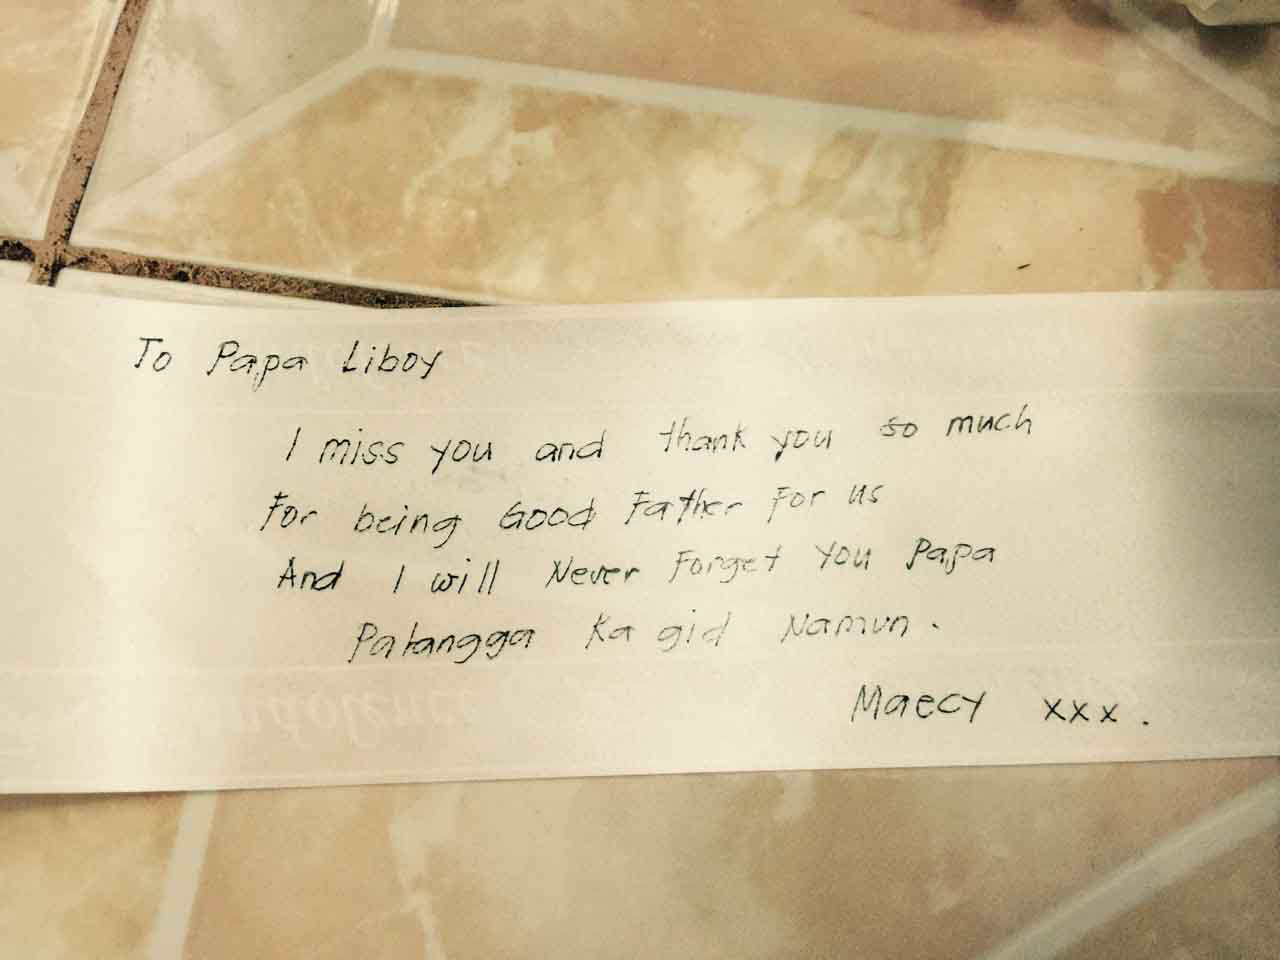 To Papa Liboy
I miss you and thank you so much
For being Good Father For us
And I will Never Forget You Papa
Palangga Ka gid Namun.
Maecy xxx.